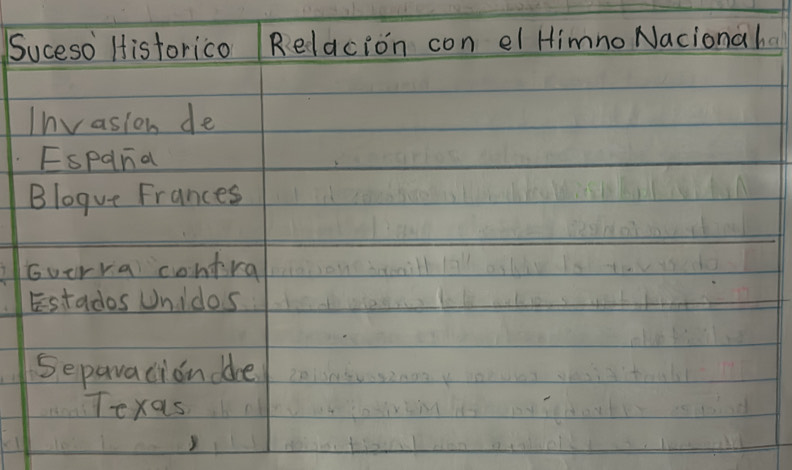 Suceso Historico
Relación con el Himno Nacional
Invasion de
España
Bloque Frances
Guerra contra
Estados Unidos
Separación de
Texas